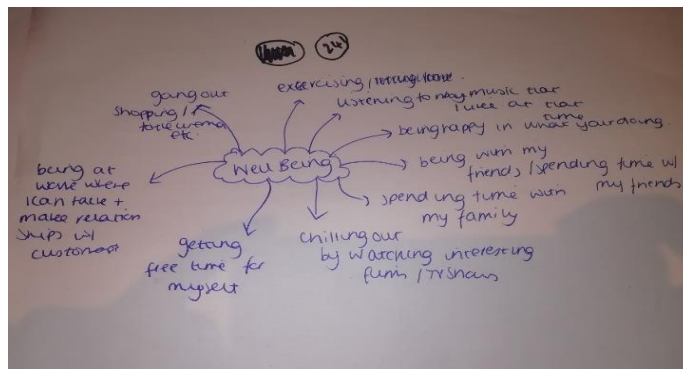 24
going out
shopping /
to the cinema
etc.
exercising /
listening to my music that
I like at that
time
being happy in what your doing.
being with my
friends / spending time w/
my friends
spending time with
my family
chilling out
by watching interesting
films / TV shows
getting
free time for
myself
being at
work where
I can talk +
make relation
ships w/
customers
Well Being